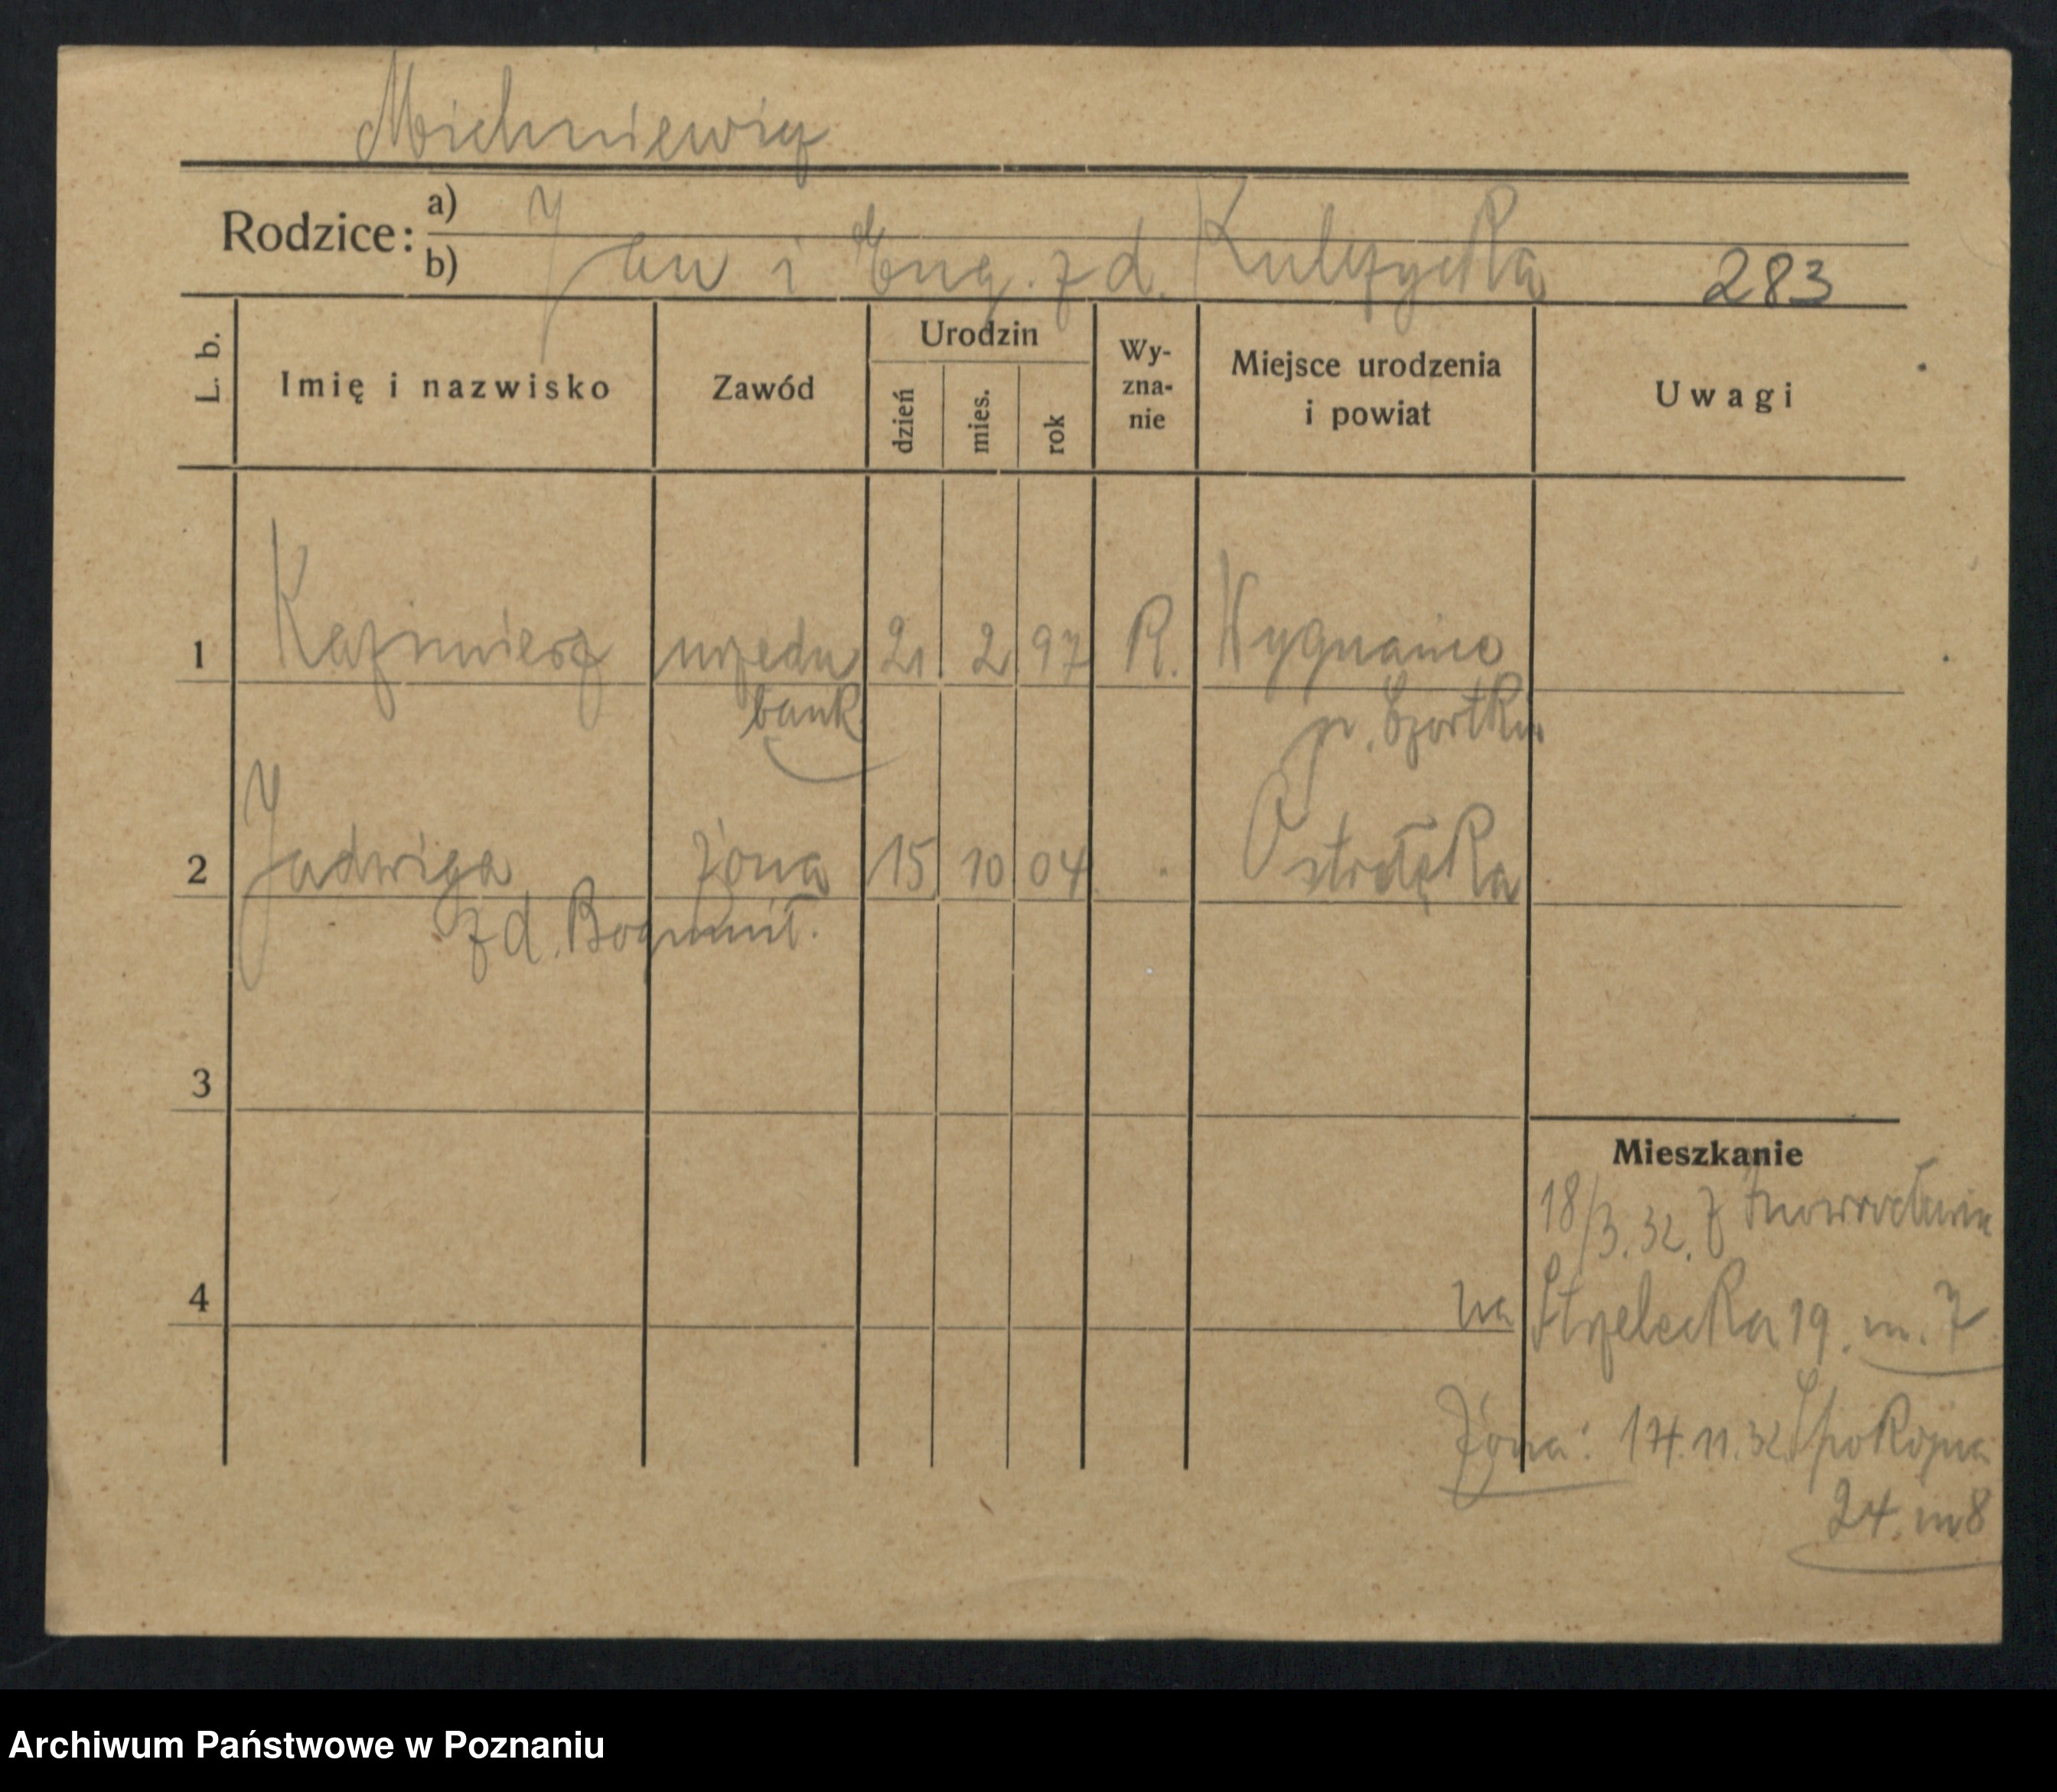 Michniewicz
Rodzice: a)
b) Jan i Eug. z d. Kulczycka 283
L. b. Imię i nazwisko Zawód Urodzin dzień mies. rok Wy-zna-nie Miejsce urodzenia i powiat Uwagi
1 Kazimierz urzędn 21. 2 97 R. Wygnanie
bank p. Czortków
2 Jadwiga żona 15. 10 04 Ostrołęka
z d. Bogumił.
3
Mieszkanie
18/3.32. z Inowrocławia
4 na Strzelecka 19. m. 7
Żona: 14.11.32 Spokojna
24. m 8
Archiwum Państwowe w Poznaniu